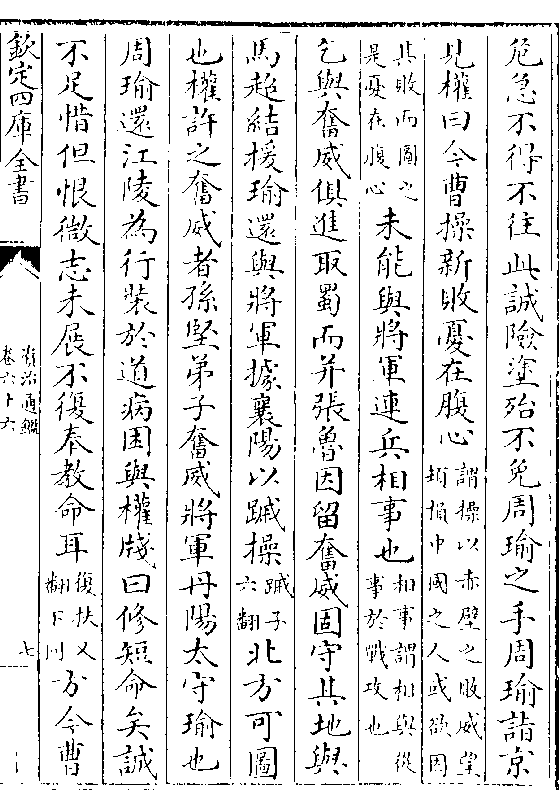 危急不得不往此誠險塗殆不免周瑜之手周瑜詣京
見權曰今曹操新敗憂在腹心謂操以赤壁之敗威望頓損中國之人或欲因
其敗而圖之是憂在腹心未能與將軍連兵相事也相事謂相與從事於戰攻也
乞與奮威俱進取蜀而并張魯因留奮威固守其地與
馬超結援瑜還與將軍據襄陽以蹴操蹴子六翻北方可圖
也權許之奮威者孫堅弟子奮威將軍丹陽太守瑜也
周瑜還江陵為行裝於道病困與權牋曰修短命矣誠
不足惜但恨微志未展不復奉教命耳復扶又翻下同方今曹
欽定四庫全書
資治通鑑
卷六十六
七